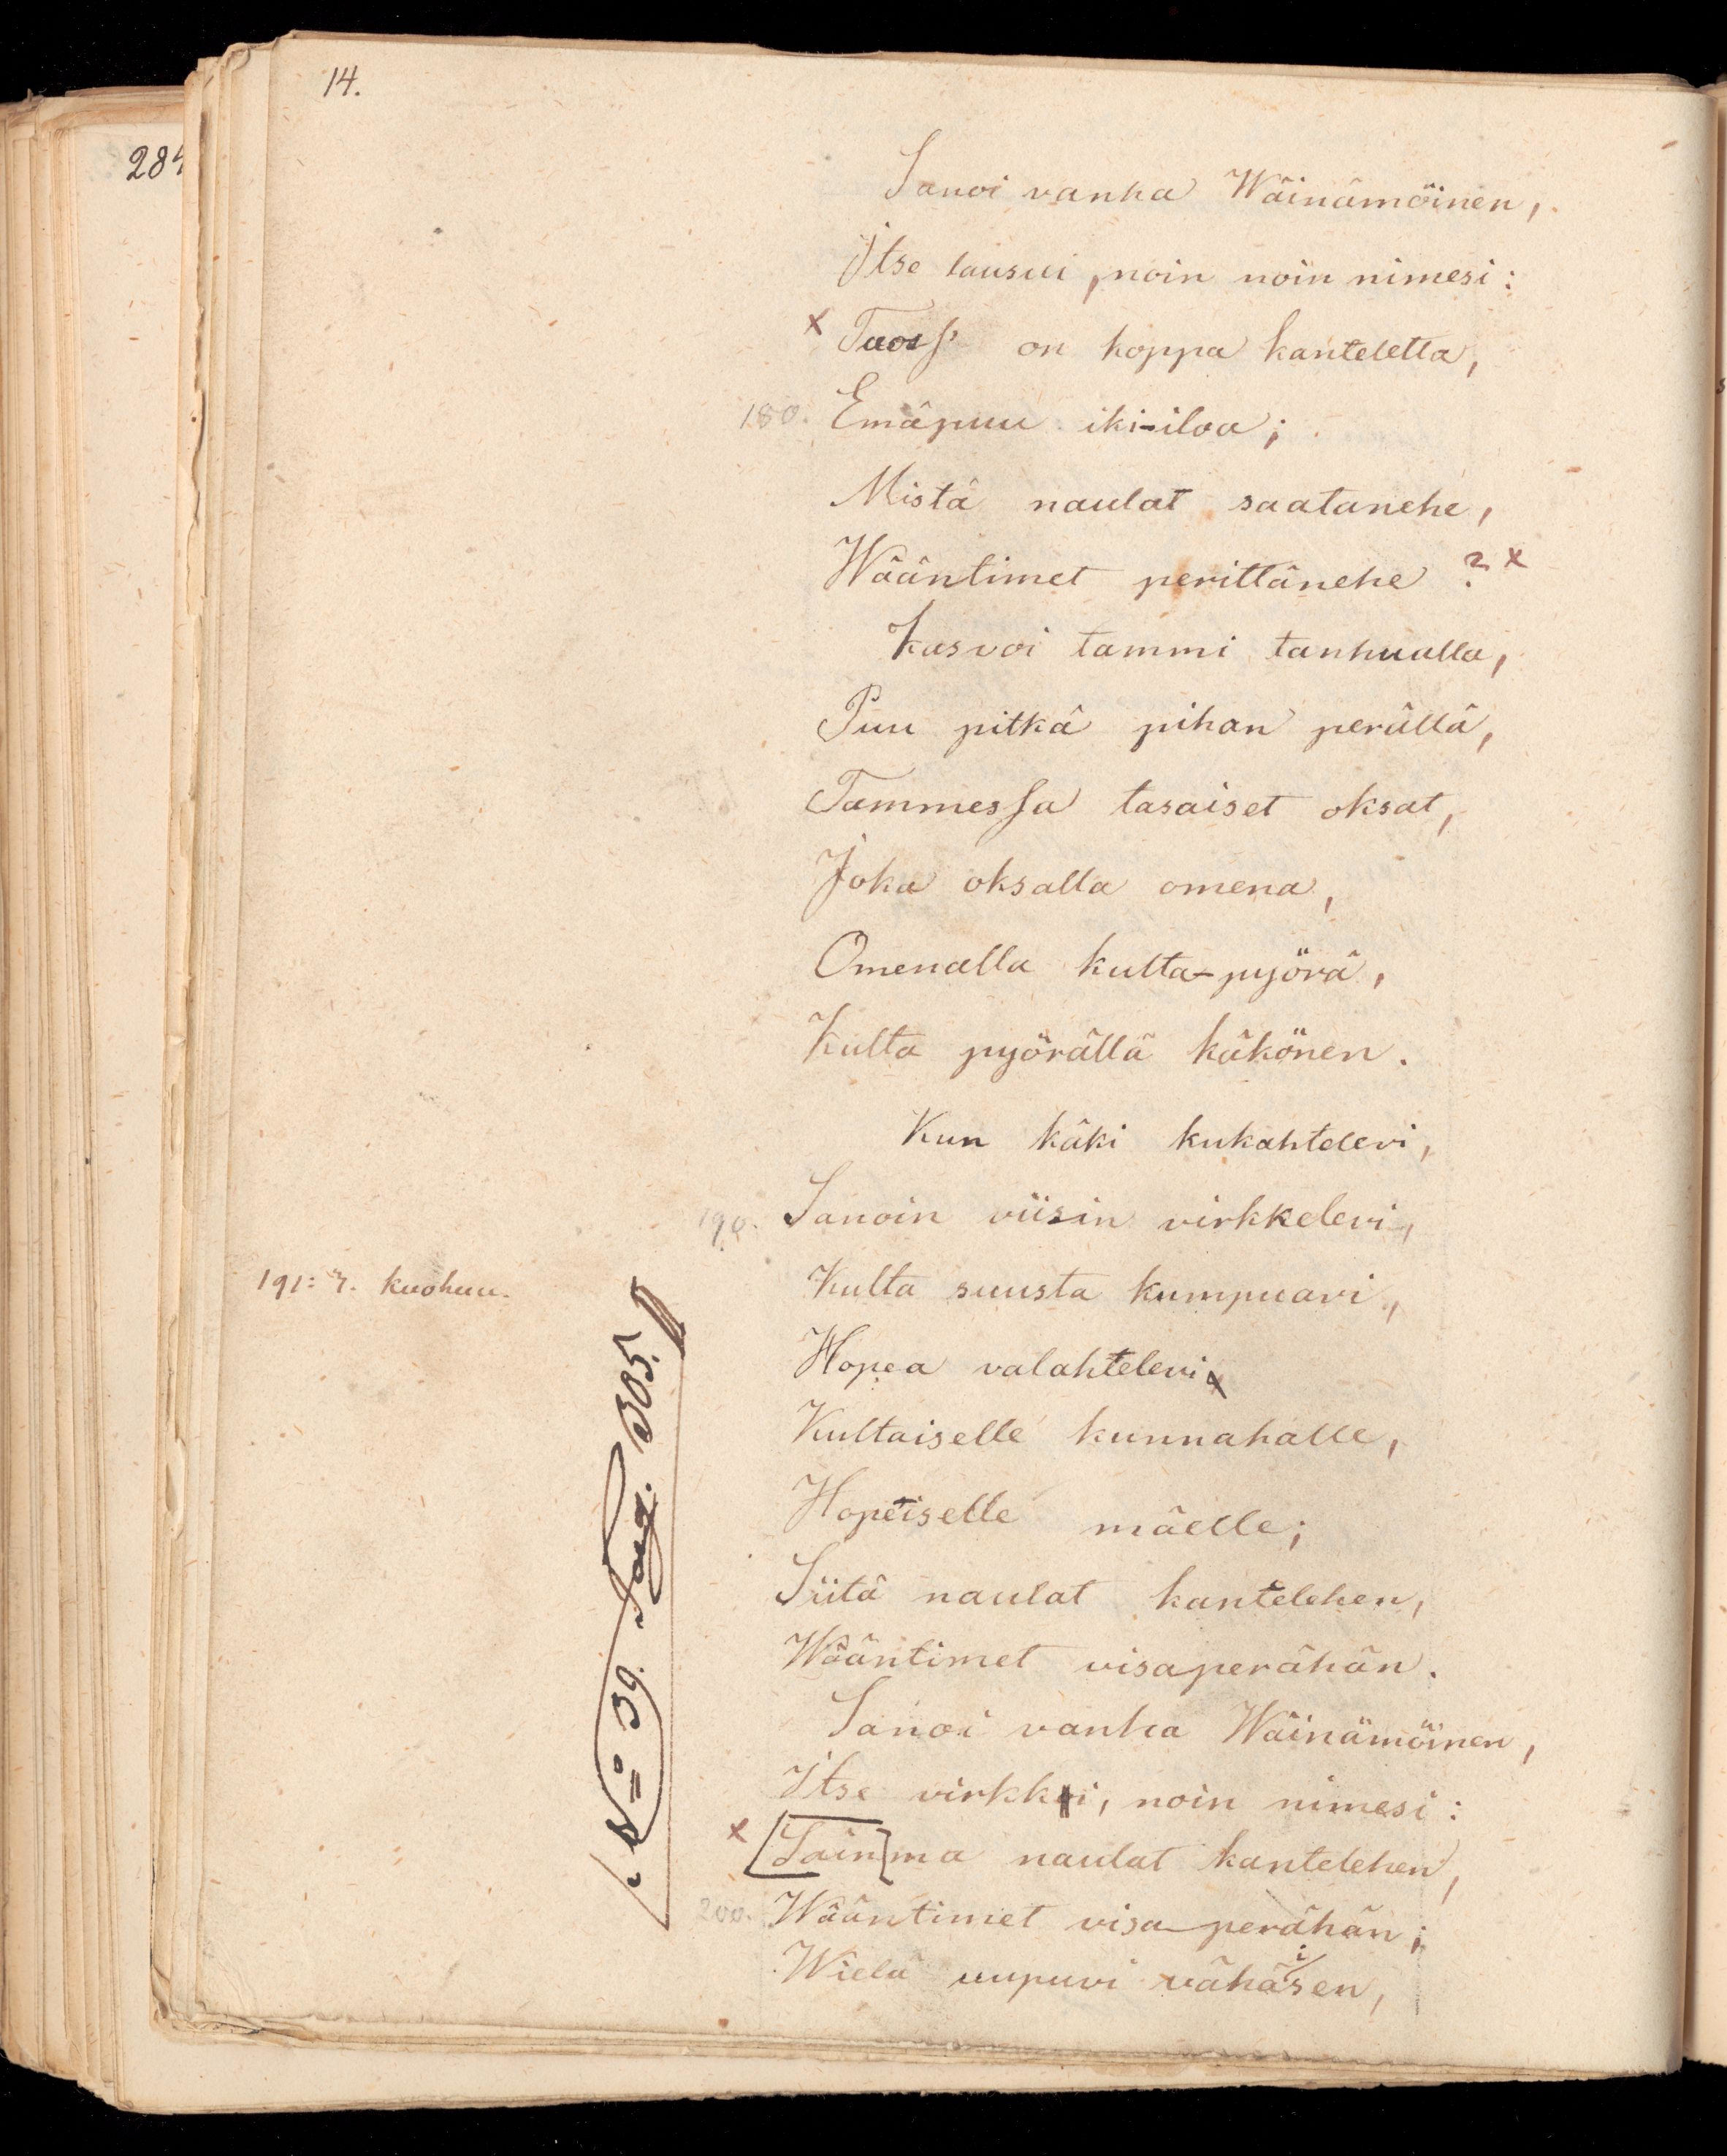 14.
284
Sanoi vanha Wäinämöinen,
Itse lausui, noin noin nimesi:
x Tuoss' on koppa kanteletta,
180. Emäpuu iki-iloa;
Mistä naulat saatanehe,
Wääntimet perittänehe? x
Kasvoi tammi tanhualla,
Puu pitkä pihan perällä,
Tammessa tasaiset oksat,
Joka oksalla omena,
Omenalla kulta-pyörä,
Kulta pyörällä käkönen.
Kun käki kukahtelevi,
190. Sanoin viisin virkkelevi,
191: r. kuohuu.
Kulta suusta kumpuavi,
Hopea valahtelevi
Kultaiselle kunnahalle,
Hopeiselle mäelle;
Siitä naulat kantelehen,
Wääntimet visaperähän.
Sanoi vanha Wäinämöinen,
Itse virkki, noin nimesi:
x [Sain]ma naulat kantelehen,
200. Wääntimet visa-perähän;
Wielä uupuvi vähäisen,
N:o 39. Pag. 305.